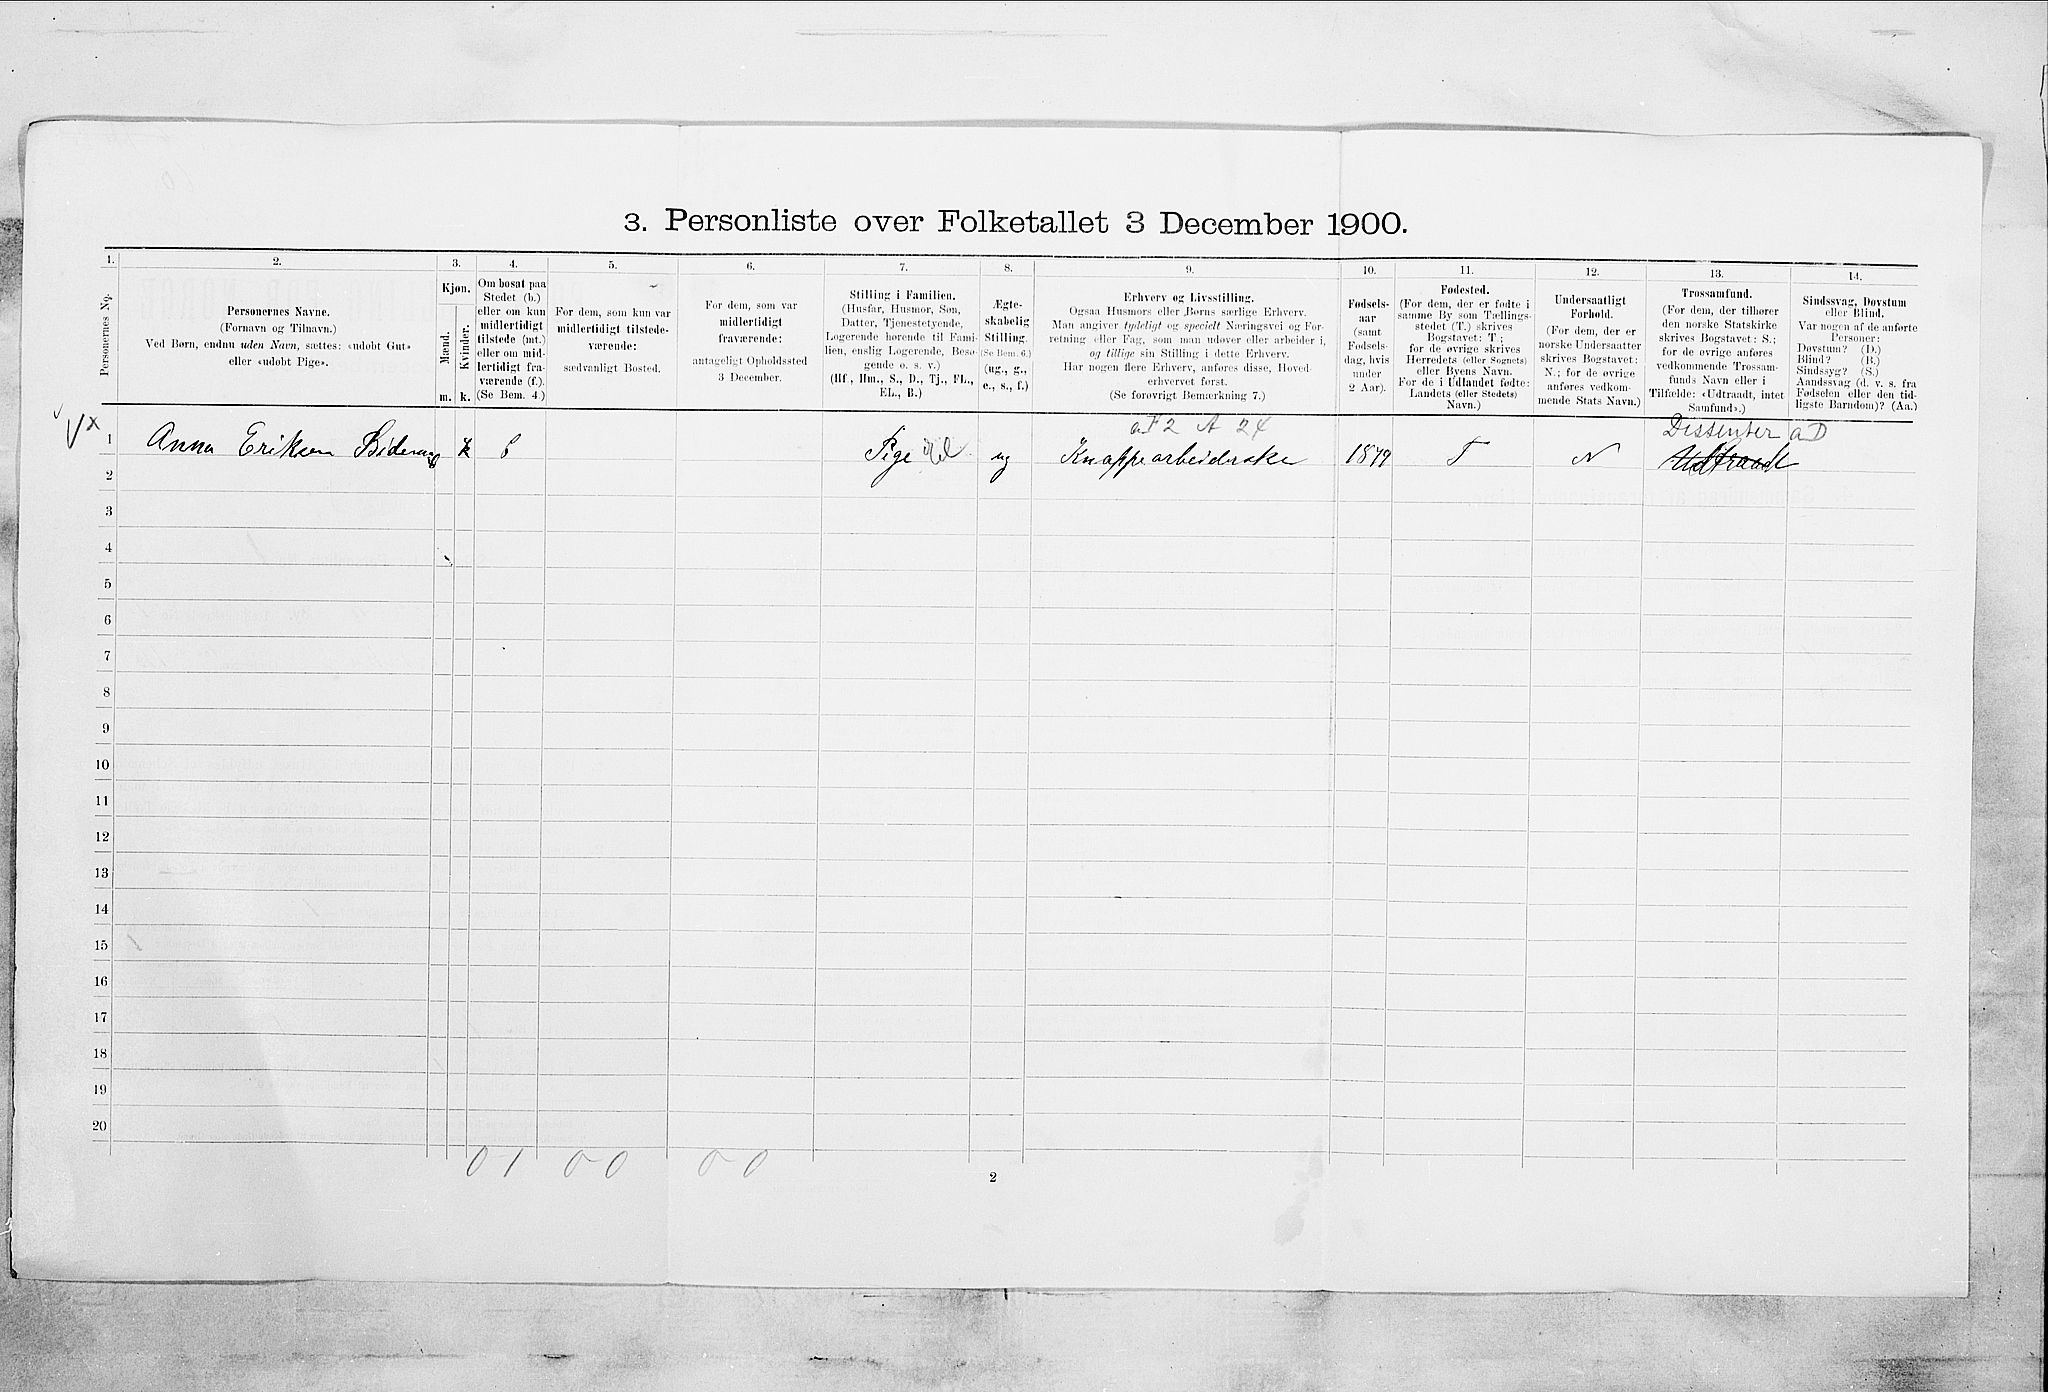 3. Personliste over Folketallet 3 December 1900.
1. 2. 3. 4. 5. 6. 7. 8. 9. 10. 11. 12. 13. 14.
Personernes No.
Personernes Navne.
(Fornavn og Tilnavn.)
Ved Børn, endnu uden Navn, sættes: «udøbt Gut»
eller «udøbt Pige».
Kjøn.
Mænd.
Kvinder.
m. k.
Om bosat paa
Stedet (b.)
eller om kun
midlertidigt
tilstede (mt.)
eller om mid-
lertidigt fra-
værende (f.).
(Se Bem. 4.)
For dem, som kun var
midlertidigt tilstede-
værende:
sædvanligt Bosted.
For dem, som var
midlertidigt
fraværende:
antageligt Opholdssted
3 December.
Stilling i Familien.
(Husfar, Husmor, Søn,
Datter, Tjenestetyende,
Logerende hørende til Fami-
lien, enslig Logerende, Besø-
gende o. s. v.)
(Hf., Hm., S., D., Tj., FL.,
EL., B.)
Ægte-
skabelig
Stilling.
(Se Bem. 6.)
(ug., g.,
e., s., f.)
Erhverv og Livsstilling.
Ogsaa Husmors eller Børns særlige Erhverv.
Man angiver tydeligt og specielt Næringsvei og For-
retning eller Fag, som man udøver eller arbeider i,
og tillige sin Stilling i dette Erhverv.
Har nogen flere Erhverv, anføres disse, Hoved-
erhvervet først.
(Se forøvrigt Bemærkning 7.)
Fødsels-
aar
(samt
Fødsels-
dag, hvis
under
2 Aar).
Fødested.
(For dem, der er fødte i
samme By som Tællings-
stedet (T.) skrives
Bogstavet: T ;
for de øvrige skrives
Herredets (eller Sognets)
eller Byens Navn.
For de i Udlandet fødte:
Landets (eller Stedets)
Navn.)
Undersaatligt
Forhold.
(For dem, der er
norske Undersaatter
skrives Bogstavet:
N.; for de øvrige
anføres vedkom-
mende Stats Navn.)
Trossamfund.
(For dem, der tilhører
den norske Statskirke
skrives Bogstavet: S.;
for de øvrige anføres
vedkommende Trossam-
funds Navn eller i
Tilfælde: «Udtraadt, intet
Samfund».)
Sindssvag, Døvstum
eller Blind.
Var nogen af de anførte
Personer:
Døvstum? (D.)
Blind? (B.)
Sindssyg? (S.)
Aandssvag (d. v. s. fra
Fødselen eller den tid-
ligste Barndom)? (Aa.)
a F 2 A 24 Dissenter a D
1 Anna Eriksen k b Pige el ug Knappearbeiderske 1879 T N Udtraadt
2
3
4
5
6
7
8
9
10
11
12
13
14
15
16
17
18
19
20
0 1 0 0 0 0
2